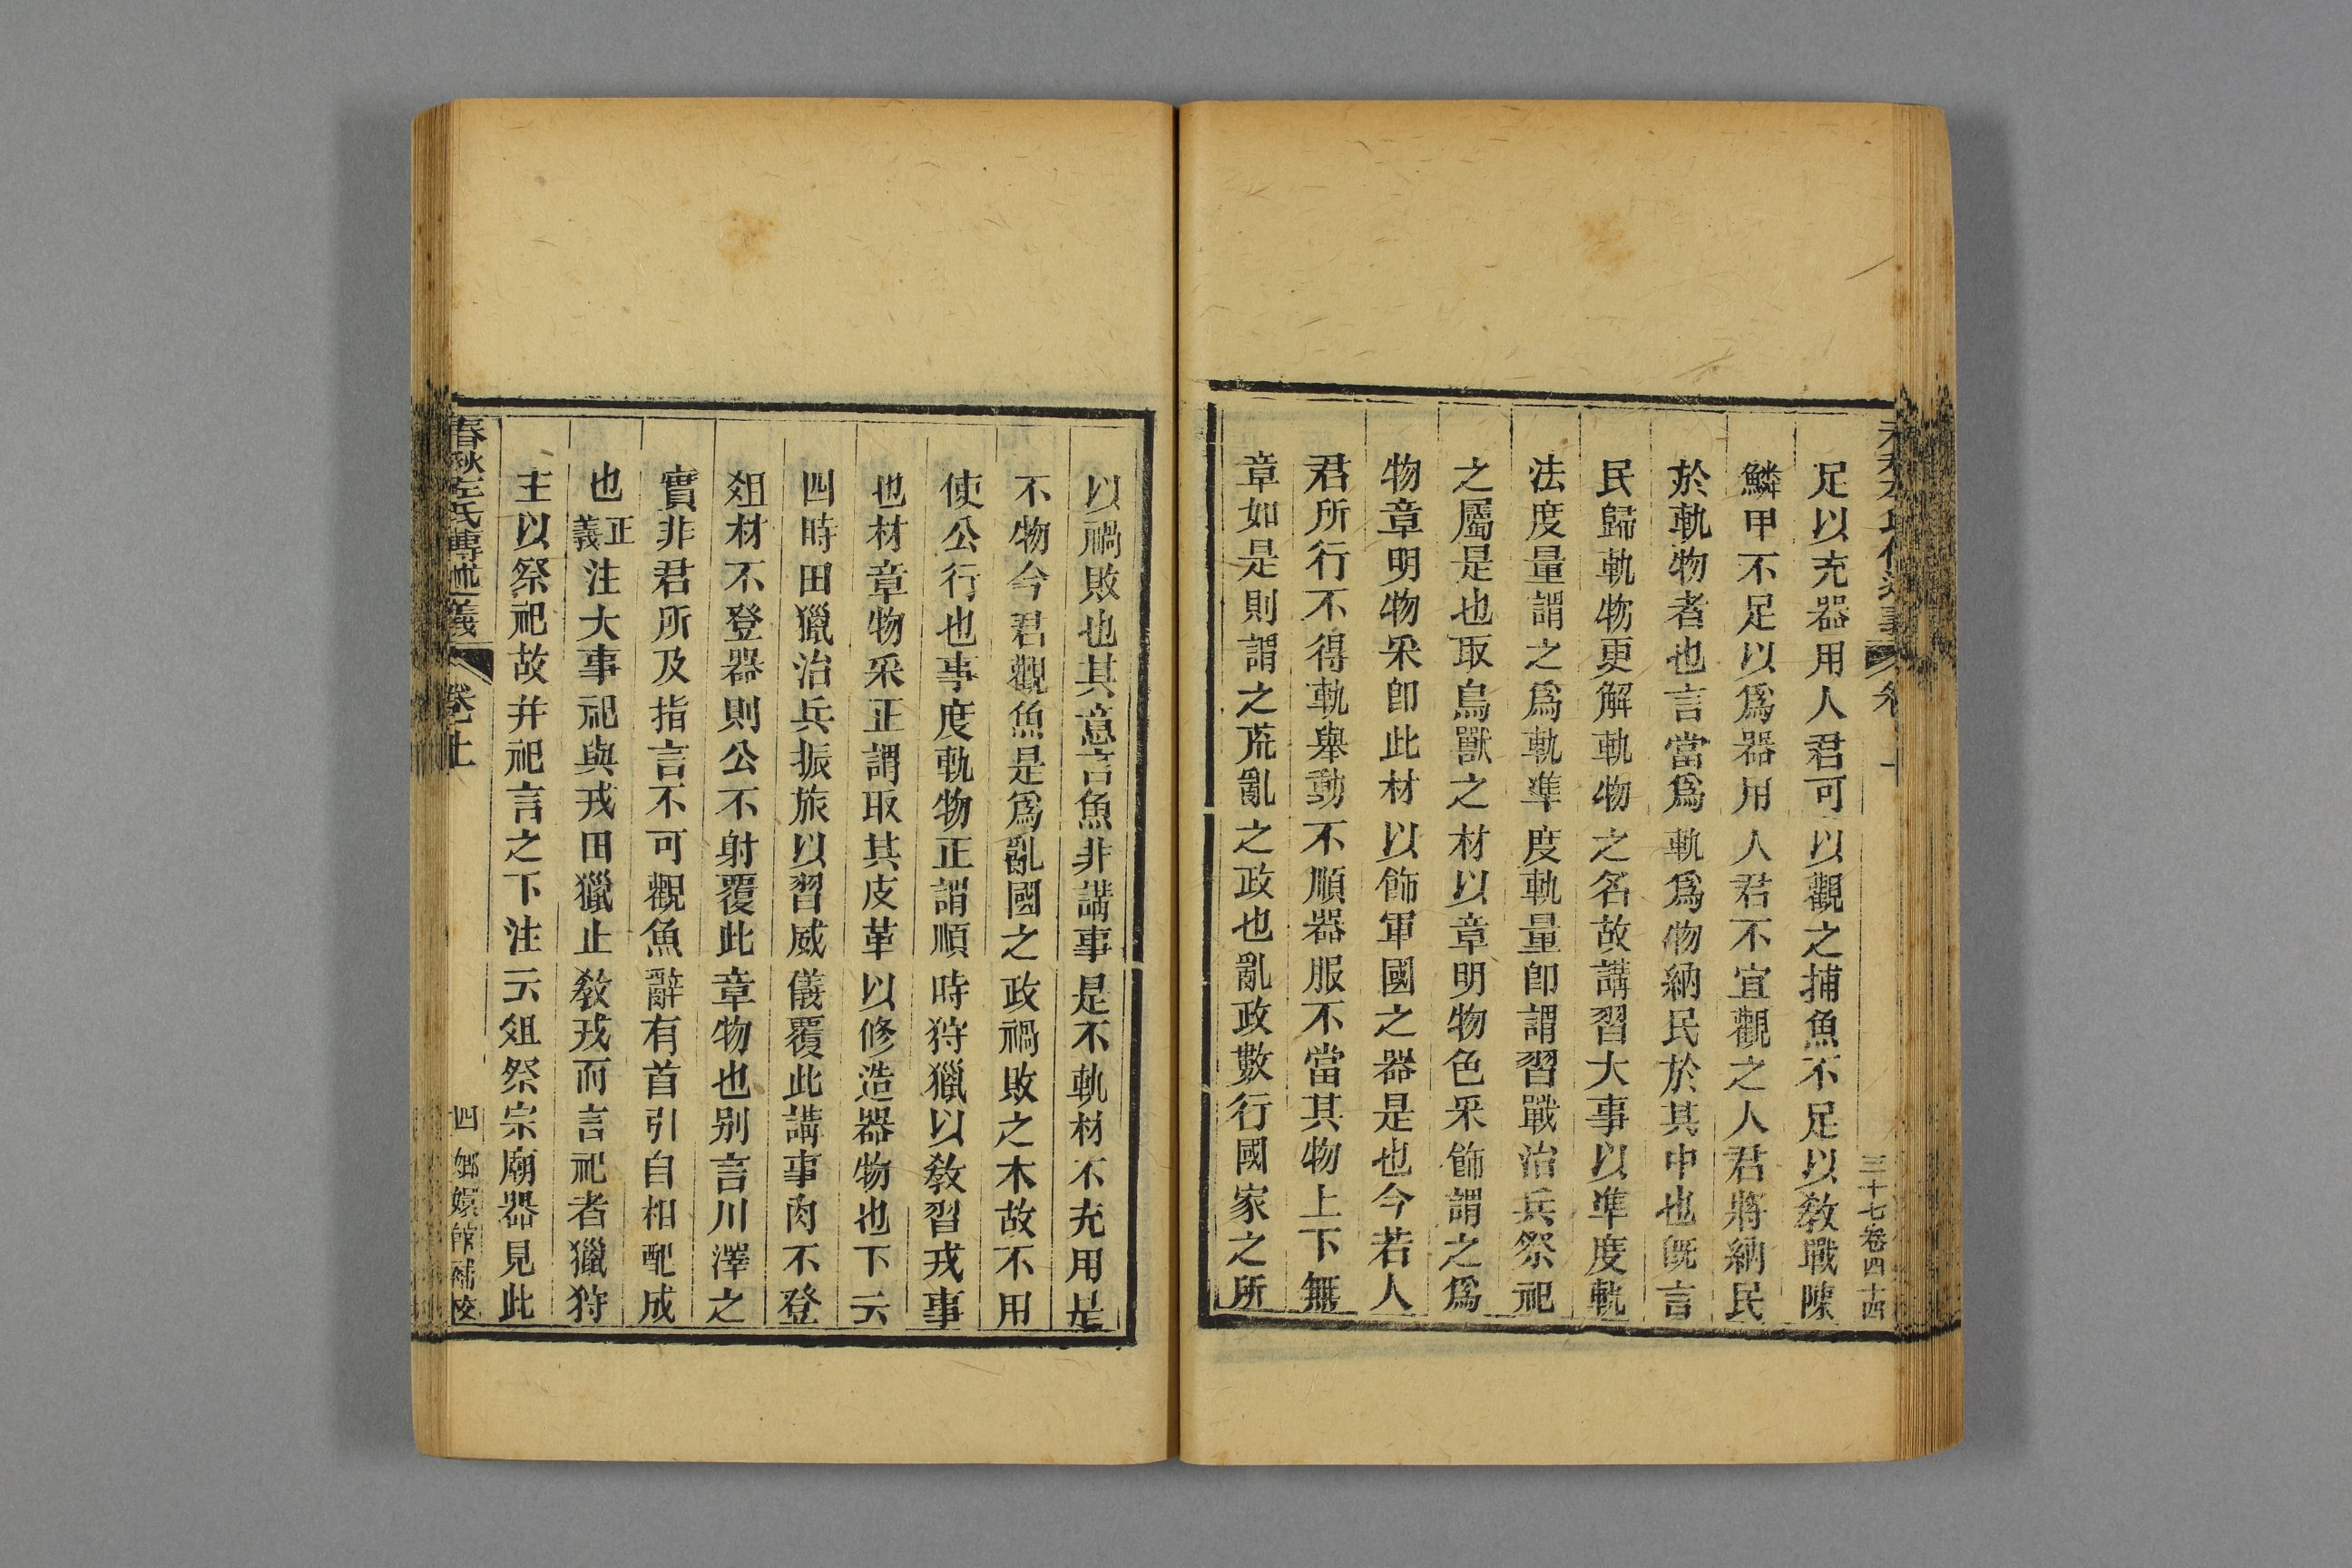 三十七卷四十四
足以充器用人君可以觀之捕魚不足以敎戰陳
鱗甲不足以爲器用人君不宜觀之人君將納民
於軌物者也言當爲軌爲物納民於其中也旣言
民歸軌物更解軌物之名故講習大事以準度軌
法度量謂之爲軌準度軌量卽謂習戰治兵祭祀
之屬是也取鳥獸之材以章明物色采飾謂之爲
物章明物采卽此材以飾軍國之器是也今若人
君所行不得軌舉動不順器服不當其物上下無
章如是則謂之荒亂之政也亂政數行國家之所
以禍敗也其意言魚非講事是不軌材不充用是
不物今君觀魚是爲亂國之政禍敗之木故不用
使公行也事度軌物正謂順時狩獵以敎習戎事
也材章物采正謂取其皮革以修造器物也下云
四時田獵治兵振旅以習威儀覆此講事肉不登
俎材不登器則公不射覆此章物也別言川澤之
實非君所及指言不可觀魚辭有首引自相配成
也正義注大事祀與戎田獵止敎戎而言祀者獵狩
主以祭祀故并祀言之下注云俎祭宗廟器見此
春秋左氏傳述義 卷上 四 嫏嬛館補校